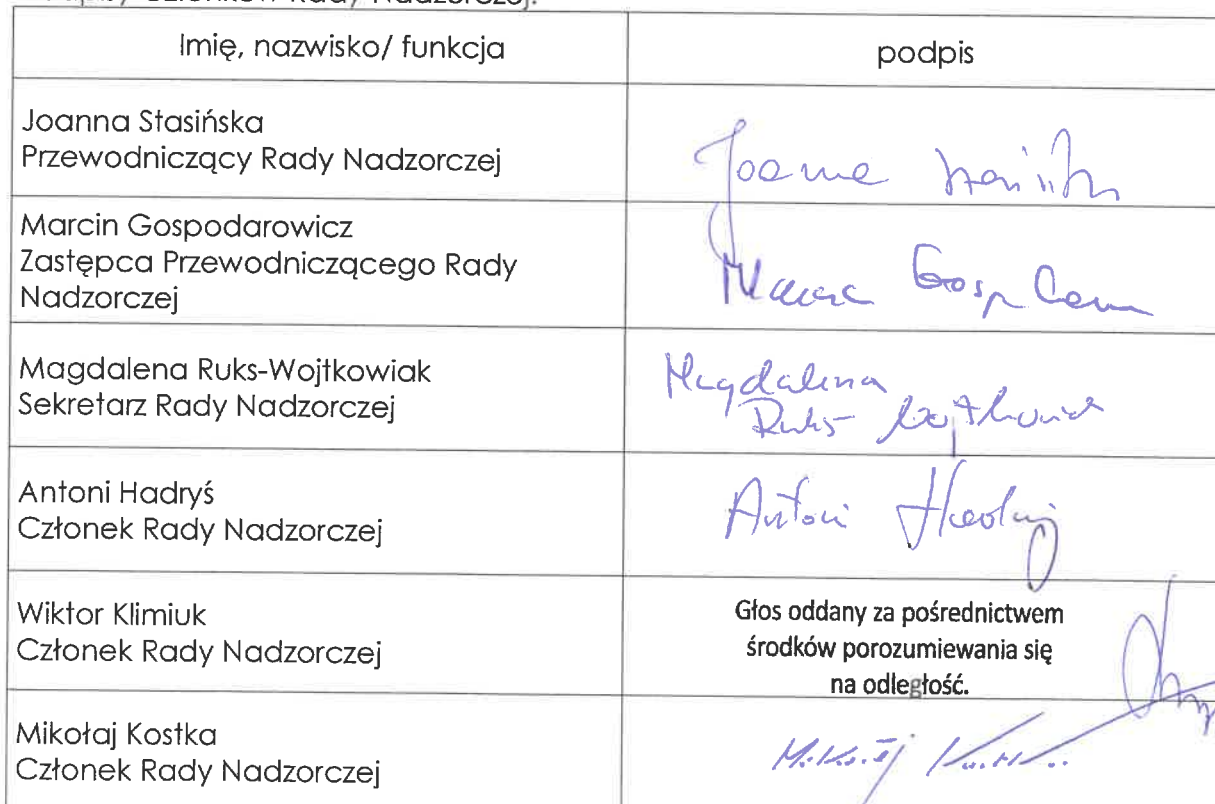 Członków Rady Nadzorczej:
Imię, nazwisko/ funkcja
podpis
Joanna Stasińska
Przewodniczący Rady Nadzorczej
Joanna
Marcin Gospodarowicz
Zastępca Przewodniczącego Rady
Nadzorczej
Magdalena Ruks-Wojtkowiak
Sekretarz Rady Nadzorczej
Magdalena
Ruks Wojtkowiak
Antoni Hadryś
Członek Rady Nadzorczej
Antoni Hadryś
Wiktor Klimiuk
Członek Rady Nadzorczej
Głos oddany za pośrednictwem
środków porozumiewania się
na odległość.
Mikołaj Kostka
Członek Rady Nadzorczej
Mikołaj Kostka